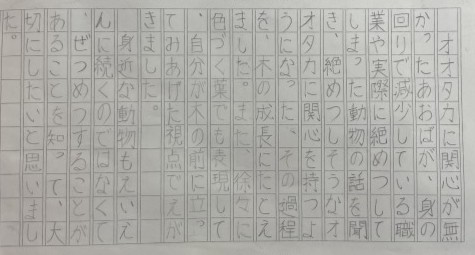 オオタカに関心が無
かったあおばが、身の
回りで減少している職
業や実際に絶めつして
しまった動物の話を聞
き、絶めつしそうなオ
オタカに関心を持つよ
うになった、その過程
を、木の成長にたとえ
ました。また、徐々に
色づく葉でも表現して
、自分が木の前に立っ
てみあげた視点でえが
きました。
身近な動物もえいえ
んに続くのではなくて
、ぜつめつすることが
あることを知って、大
切にしたいと思いまし
た。